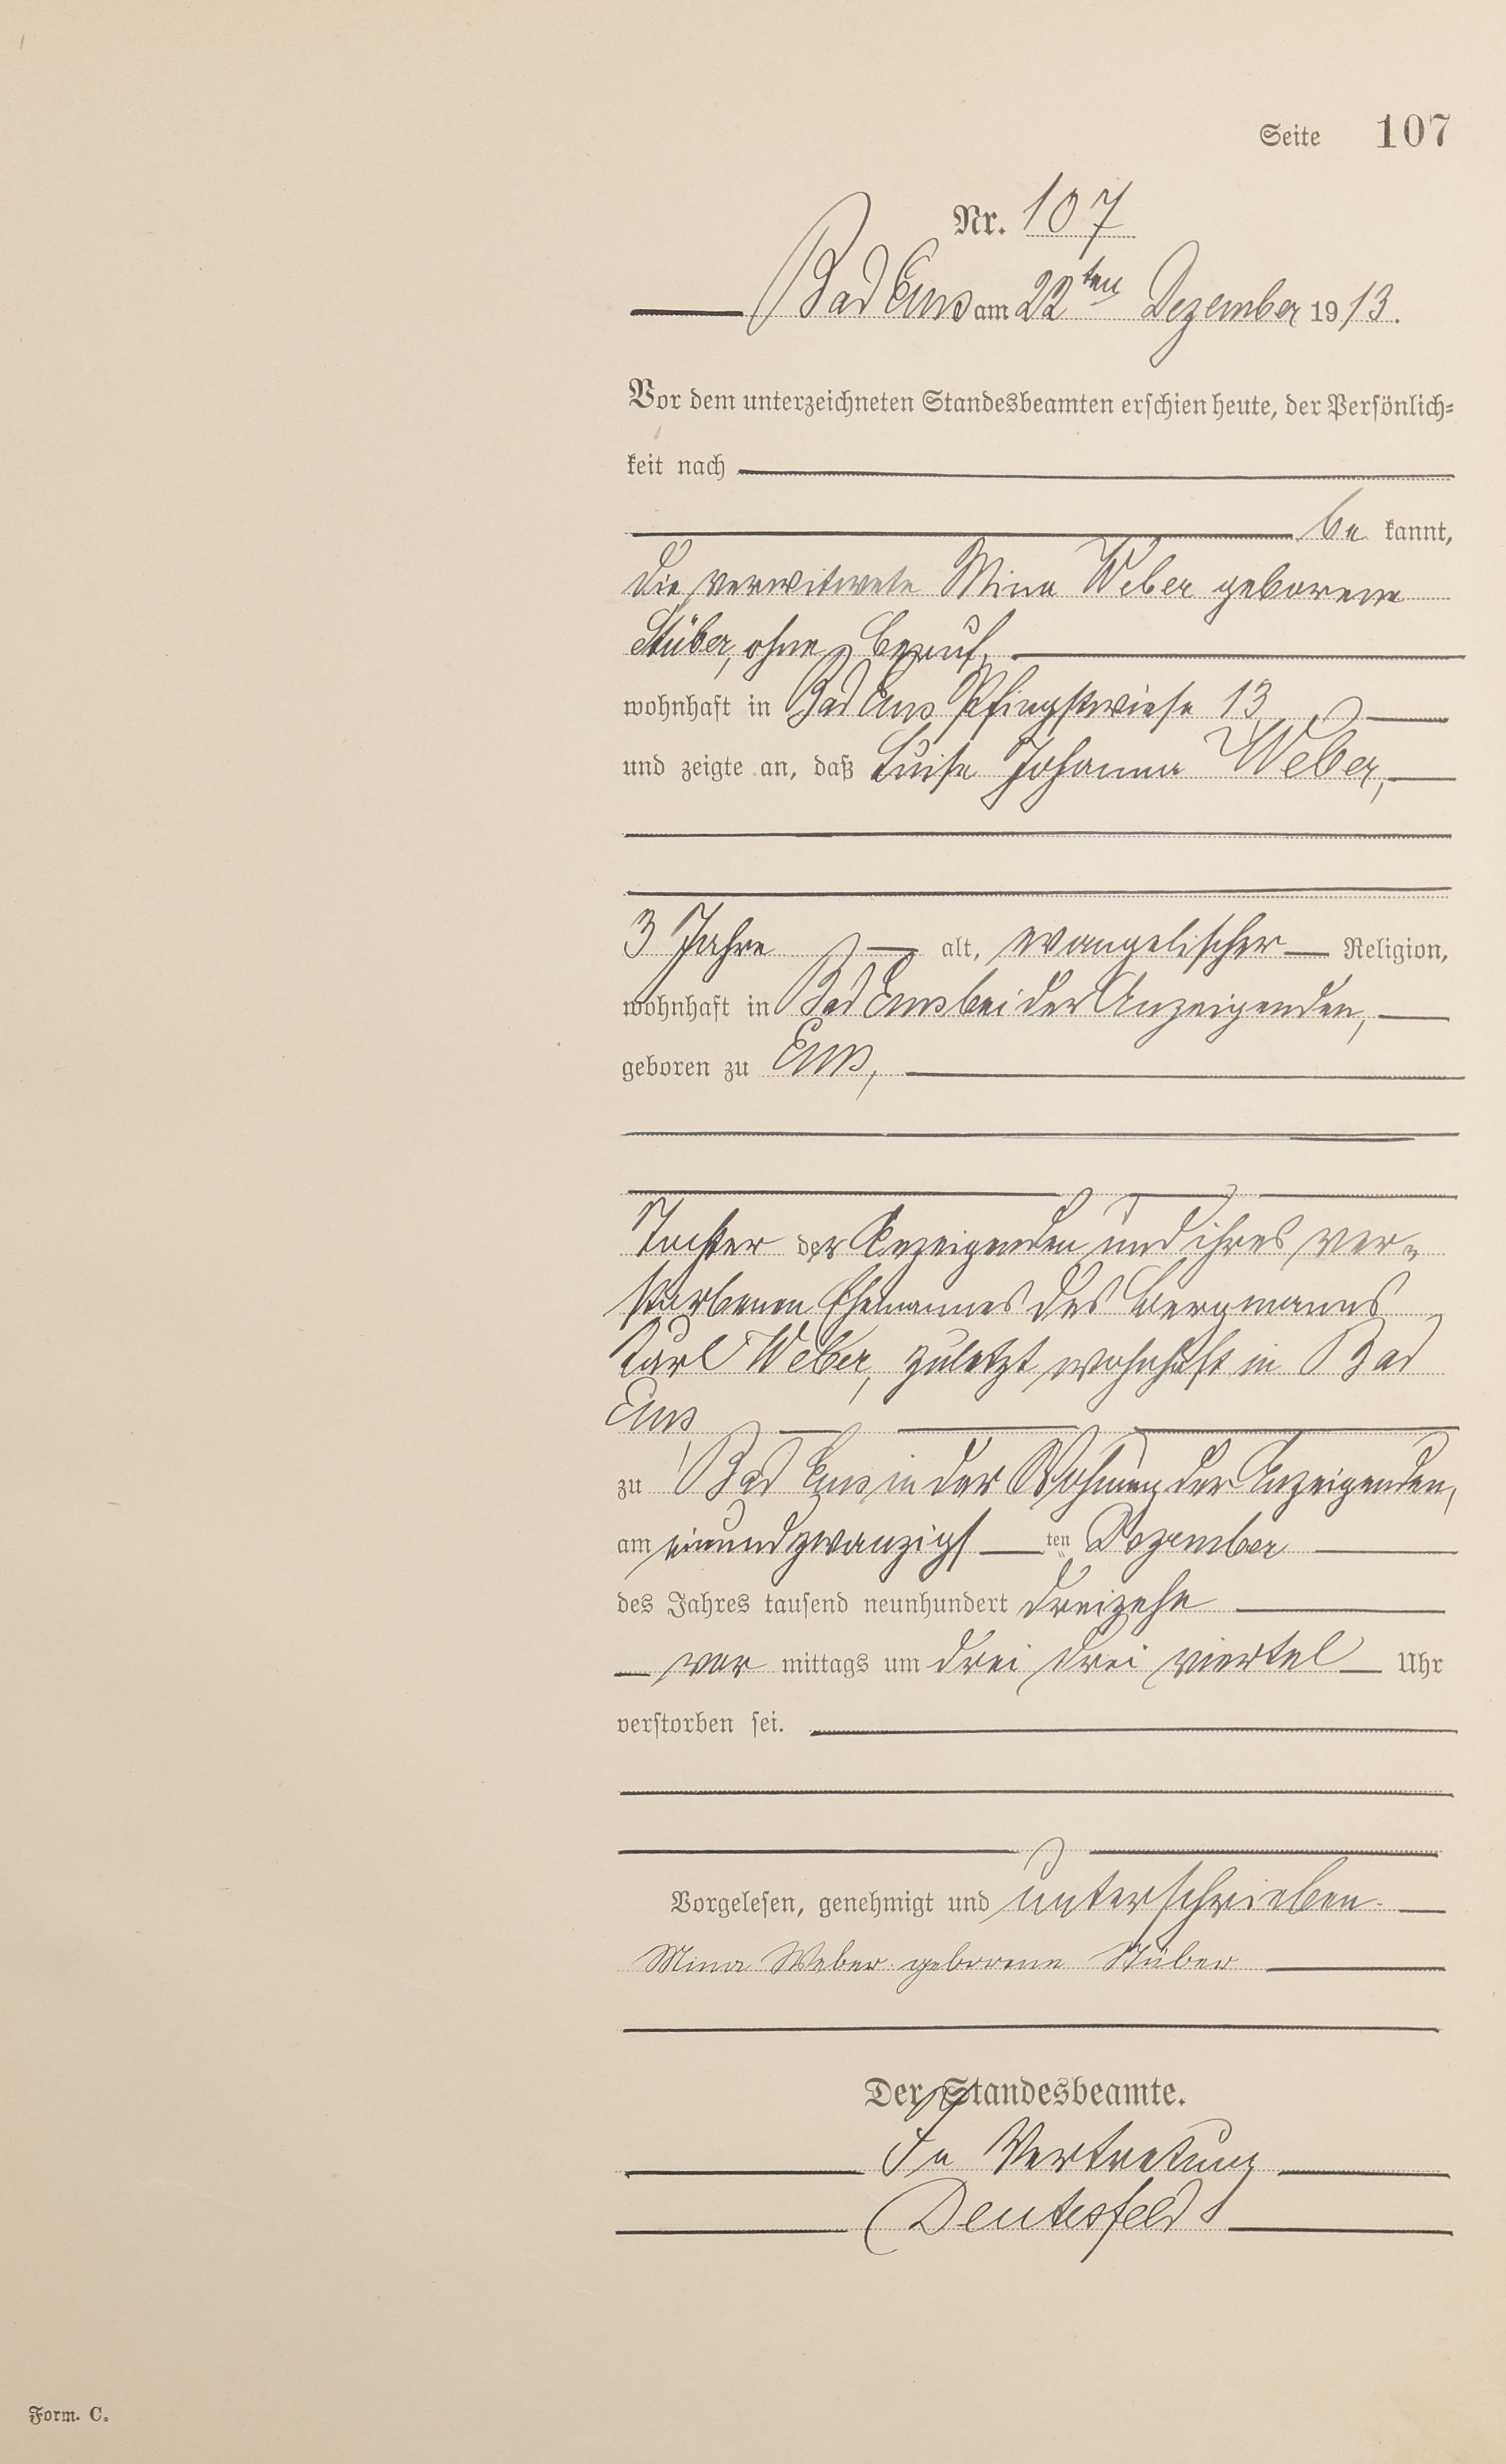 Seite 107
Nr. 107
Bad Ems am 22ten Dezember 1913.
Vor dem unterzeichneten Standesbeamten erschien heute, der Persönlich-
keit nach
be kannt,
die verwitwete Mina Weber geborene
Stüber, ohne Beruf,
wohnhaft in Bad Ems Pfingstwiese 13
und zeigte an, daß Luise Johanna Weber,
3 Jahre alt, evangelischer Religion,
wohnhaft in Bad Ems bei der Anzeigenden,
geboren zu Ems,
Tochter der Anzeigenden und ihres ver-
storbenen Ehemannes des Bergmanns
Karl Weber, zuletzt wohnhaft in Bad
Ems
zu Bad Ems in der Wohnung der Anzeigenden,
am einundzwanzigsten Dezember
des Jahres tausend neunhundert dreizehn
vor mittags um drei drei viertel Uhr
verstorben sei.
Vorgelesen, genehmigt und unterschrieben
Mina Weber geborene Stüber
Der Standesbeamte.
In Vertretung
Deutesfeld
Form. C.